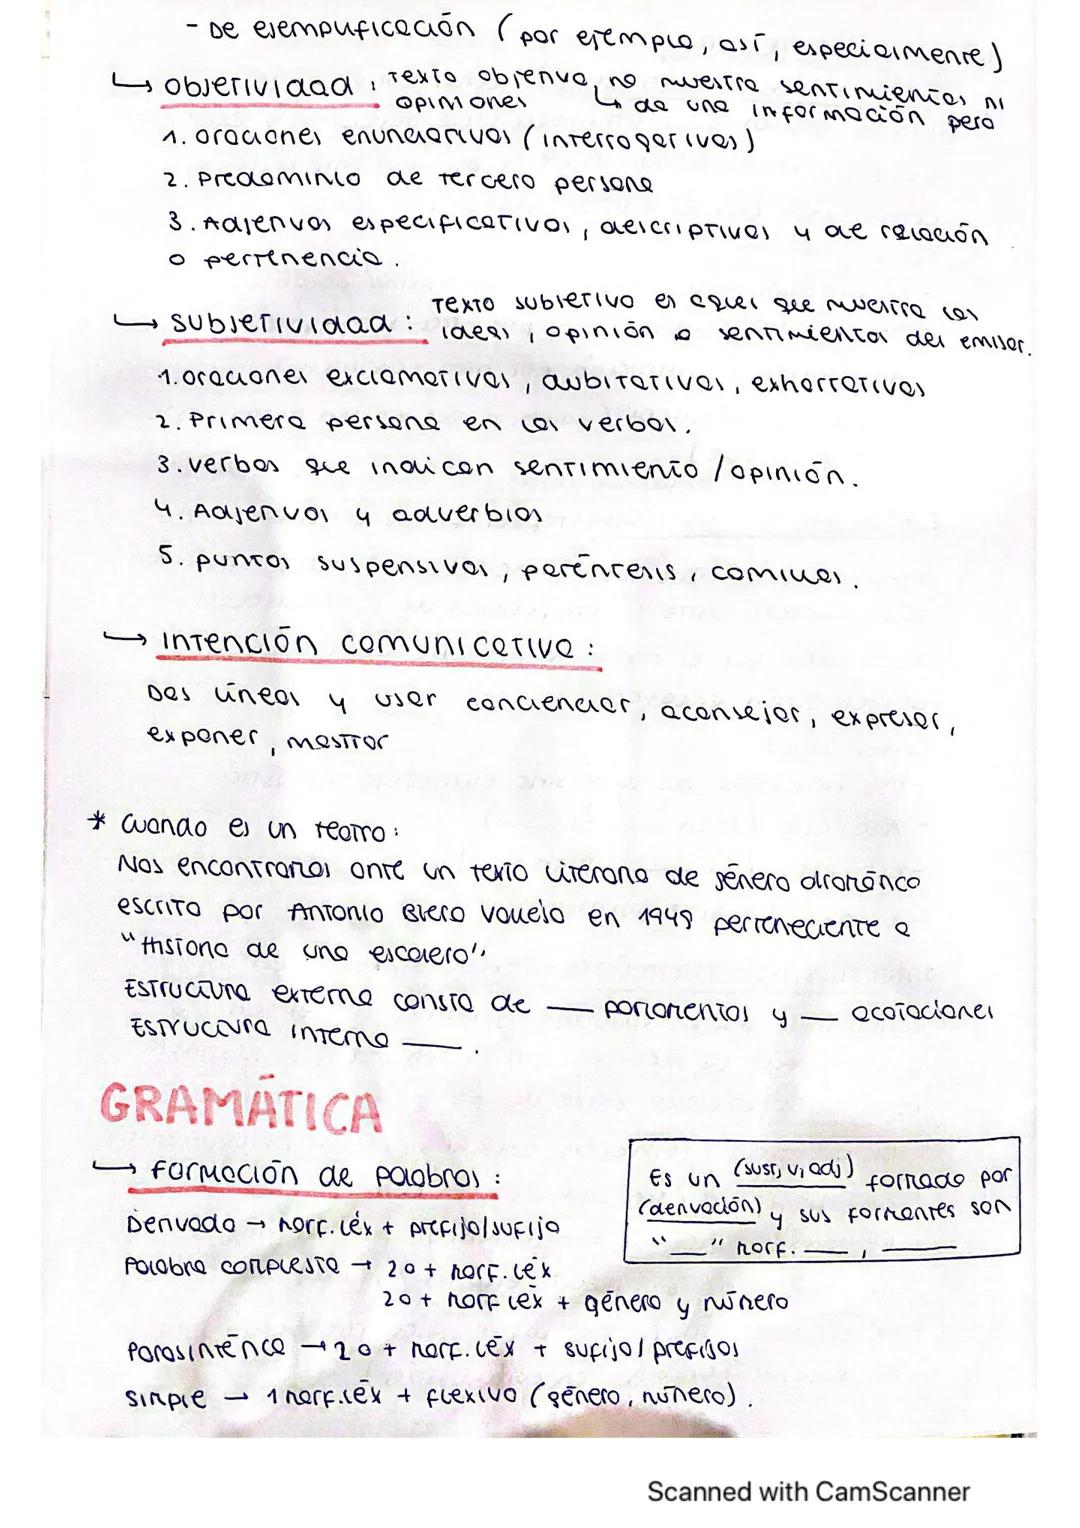 - De ejemplificación (por ejemplo, así, especialmente)
↳ objetividad: Texto objetivo, no muestra sentimientos ni
opiniones ↳ da una información pero
1. oraciones enunciativas (interrogativas)
2. Predominio de tercera persona
3. Adjetivos especificativos, descriptivos y de relación
o pertenencia.
↳ subjetividad: Texto subjetivo es aquel que muestra las
ideas, opinión o sentimientos del emisor.
1. oraciones exclamativas, dubitativas, exhortativas
2. Primera persona en los verbos.
3. verbos que indican sentimiento / opinión.
4. Adjetivos y adverbios
5. puntos suspensivos, paréntesis, comillas.
↳ intención comunicativa:
Dos líneas y usar concienciar, aconsejar, expresar,
exponer, mostrar
* Cuando es un teatro:
Nos encontramos ante un texto literario de género dramático
escrito por Antonio Buero Vallejo en 1949 perteneciente a
"Historia de una escalera".
Estructura externa consta de __ parlamentos y __ acotaciones
Estructura interna __.
GRAMÁTICA
↳ formación de palabras:
Es un (sust, v, adj) formado por
(derivación) y sus formantes son
"__" morf. __, __
Derivada → morf. léx + prefijo/sufijo
Palabra compuesta → 2 o + morf. léx
2 o + morf léx + género y número
Parasintética → 2 o + morf. léx + sufijo/prefijos
simple → 1 morf. léx + flexivo (género, número).
Scanned with CamScanner